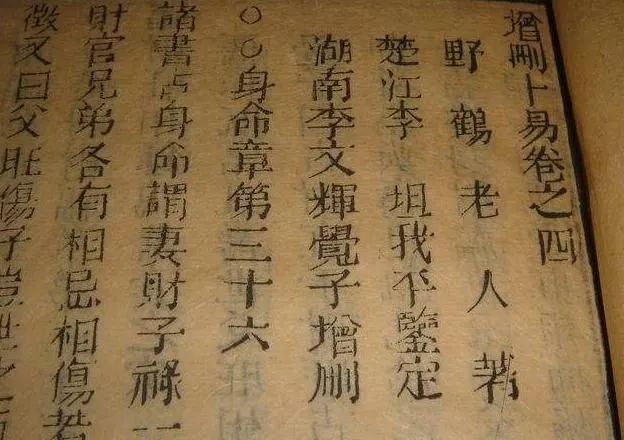 增刪卜易卷之四
野鶴老人著
楚江李坦我平鑒定
湖南李文輝覺子增刪
○○身命章第三十六
諸書占身命謂妻財子祿一
財官兄弟各有相忌相傷若
徴又曰父旺傷子豈世之